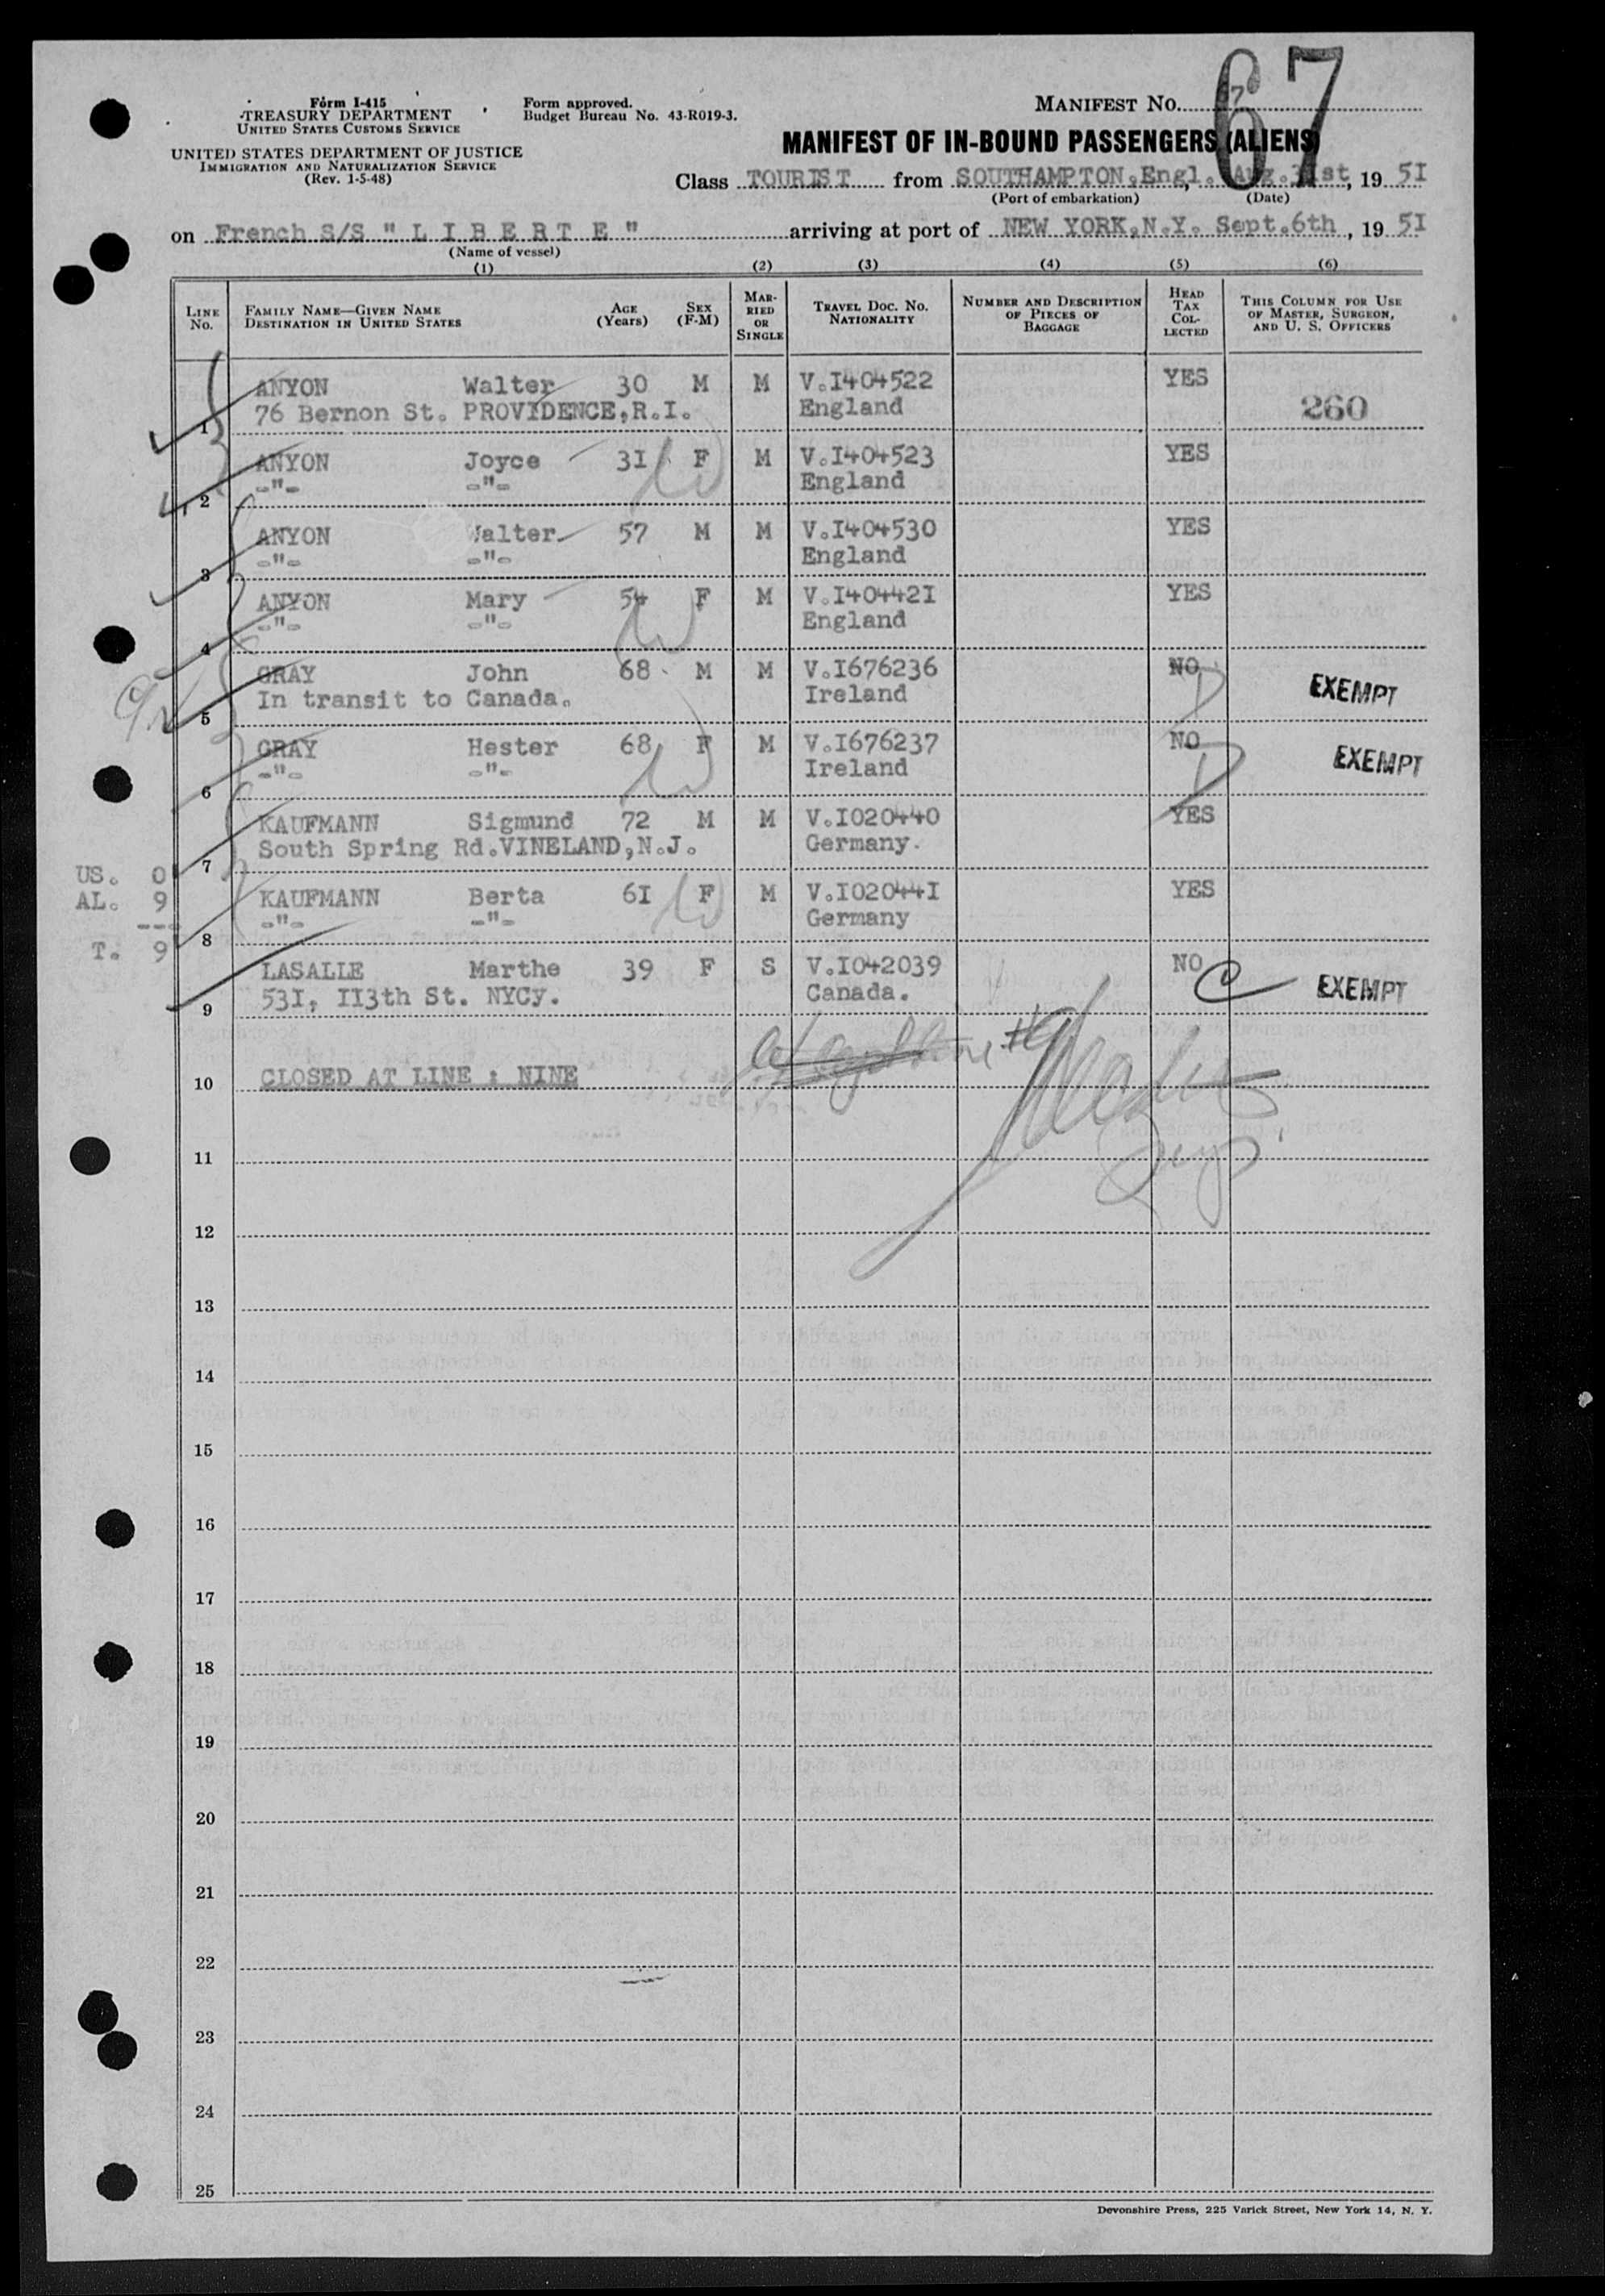 67
Form I-415
TREASURY DEPARTMENT
UNITED STATES CUSTOMS SERVICE
UNITED STATES DEPARTMENT OF JUSTICE
IMMIGRATION AND NATURALIZATION SERVICE
(Rev. 1-5-48)
Form approved.
Budget Bureau No. 43-R019-3.
MANIFEST NO. 67
MANIFEST OF IN-BOUND PASSENGERS (ALIENS)
Class TOURIST from SOUTHAMPTON, Engl., Aug. 31st, 19 51
(Port of embarkation) (Date)
on French S/S " L I B E R T E " arriving at port of NEW YORK, N.Y. Sept. 6th, 19 51
(Name of vessel)
(1) (2) (3) (4) (5) (6)
LINE No. FAMILY NAME—GIVEN NAME DESTINATION IN UNITED STATES AGE (Years) SEX (F-M) MARRIED OR SINGLE TRAVEL DOC. NO. NATIONALITY NUMBER AND DESCRIPTION OF PIECES OF BAGGAGE HEAD TAX COLLECTED THIS COLUMN FOR USE OF MASTER, SURGEON, AND U. S. OFFICERS
ANYON Walter 30 M M V.I404522 YES
1 76 Bernon St. PROVIDENCE, R.I. England 260
ANYON Joyce 3I F M V.I404523 YES
2 -"- -"- England
ANYON Walter 57 M M V.I404530 YES
3 -"- -"- England
ANYON Mary 54 F M V.I40442I YES
4 -"- -"- England
GRAY John 68 M M V.I676236 NO EXEMPT
5 In transit to Canada. Ireland
GRAY Hester 68 F M V.I676237 NO EXEMPT
6 -"- -"- Ireland
KAUFMANN Sigmund 72 M M V.I020440 YES
7 South Spring Rd. VINELAND, N.J. Germany.
US. 0
AL. 9
---
T. 9
KAUFMANN Berta 6I F M V.I02044I YES
8 -"- -"- Germany
LASALLE Marthe 39 F S V.I042039 NO C EXEMPT
9 53I, II3th St. NYCy. Canada.
10 CLOSED AT LINE : NINE
11
12
13
14
15
16
17
18
19
20
21
22
23
24
25
Devonshire Press, 225 Varick Street, New York 14, N. Y.